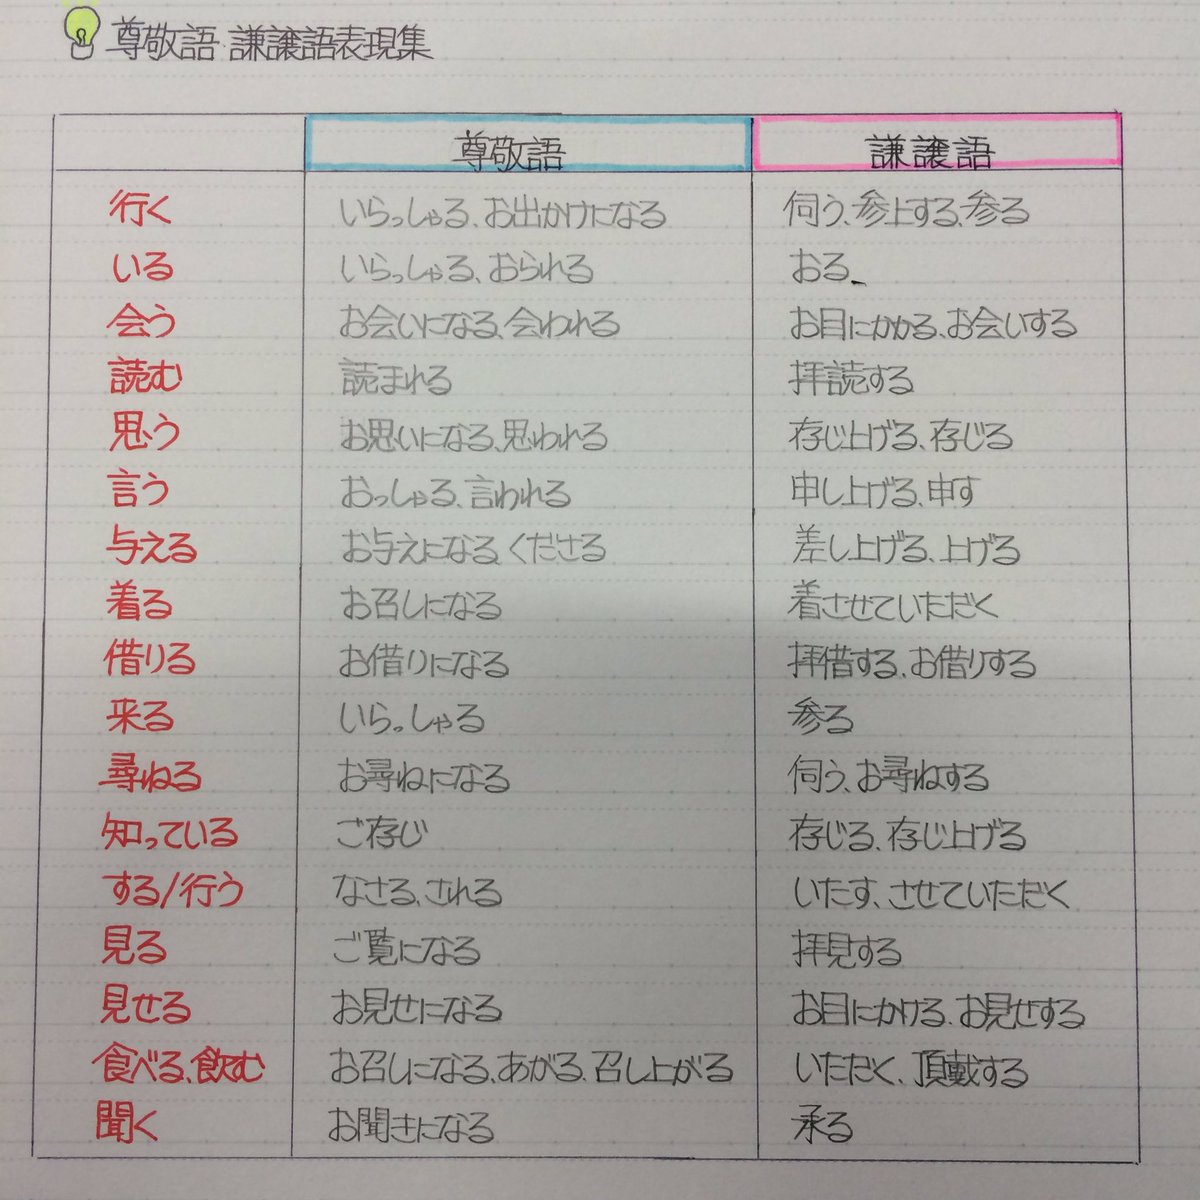 尊敬語・謙譲語表現集
尊敬語 謙譲語
行く いらっしゃる、お出かけになる 伺う、参上する、参る
いる いらっしゃる、おられる おる、
会う お会いになる、会われる お目にかかる、お会いする
読む 読まれる 拝読する
思う お思いになる、思われる 存じ上げる、存じる
言う おっしゃる、言われる 申し上げる、申す
与える お与えになる、くださる 差し上げる、上げる
着る お召しになる 着させていただく
借りる お借りになる 拝借する、お借りする
来る いらっしゃる 参る
尋ねる お尋ねになる 伺う、お尋ねする
知っている ご存じ 存じる、存じ上げる
する/行う なさる、される いたす、させていただく
見る ご覧になる 拝見する
見せる お見せになる お目にかける、お見せする
食べる、飲む お召しになる、あがる、召し上がる いただく、頂戴する
聞く お聞きになる 承る